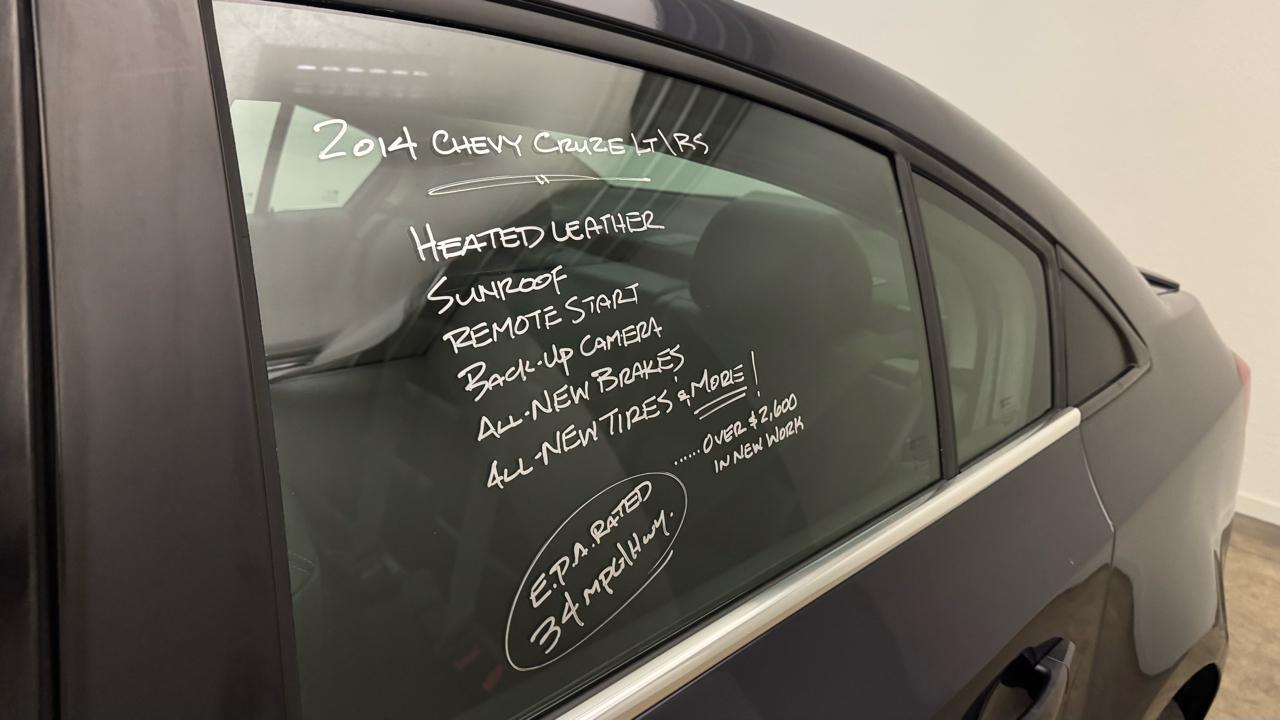 2014 CHEVY CRUZE LT\RS
HEATED LEATHER
SUNROOF
REMOTE START
BACK-UP CAMERA
ALL-NEW BRAKES
ALL-NEW TIRES & MORE!
......OVER $2,600
IN NEW WORK
E.P.A. RATED
34 MPG/HWY.